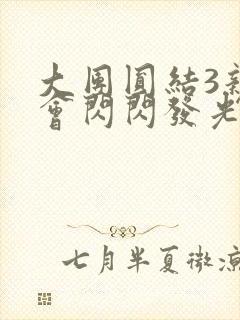 大團圓結3新
會閃閃發光
七月半夏微涼